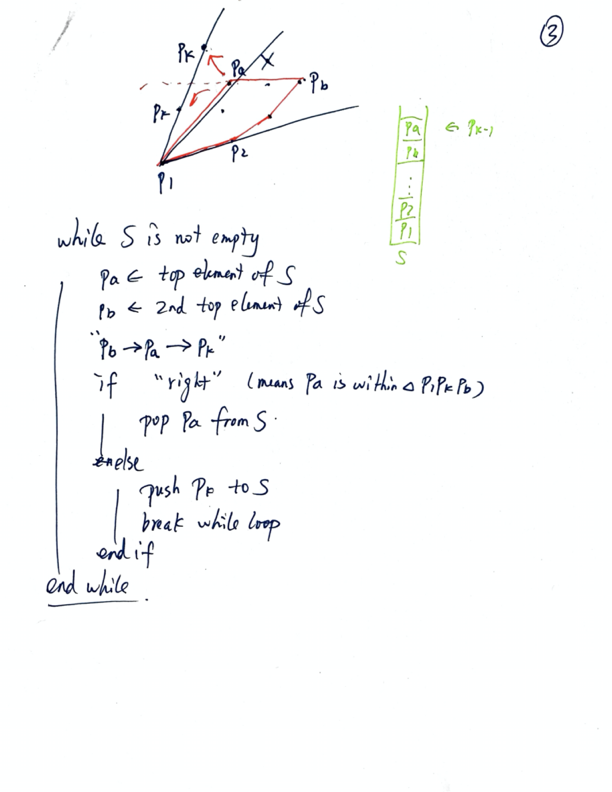 ③
Pk
Pa
X
Pb
Pk
P2
P1
Pa ← Pk-1
Pb
⋮
P2
P1
S
while S is not empty
Pa ← top element of S
Pb ← 2nd top element of S
"Pb → Pa → Pk"
if "right" (means Pa is within △ P1PkPb)
pop Pa from S.
else
push Pk to S
break while loop
end if
end while.